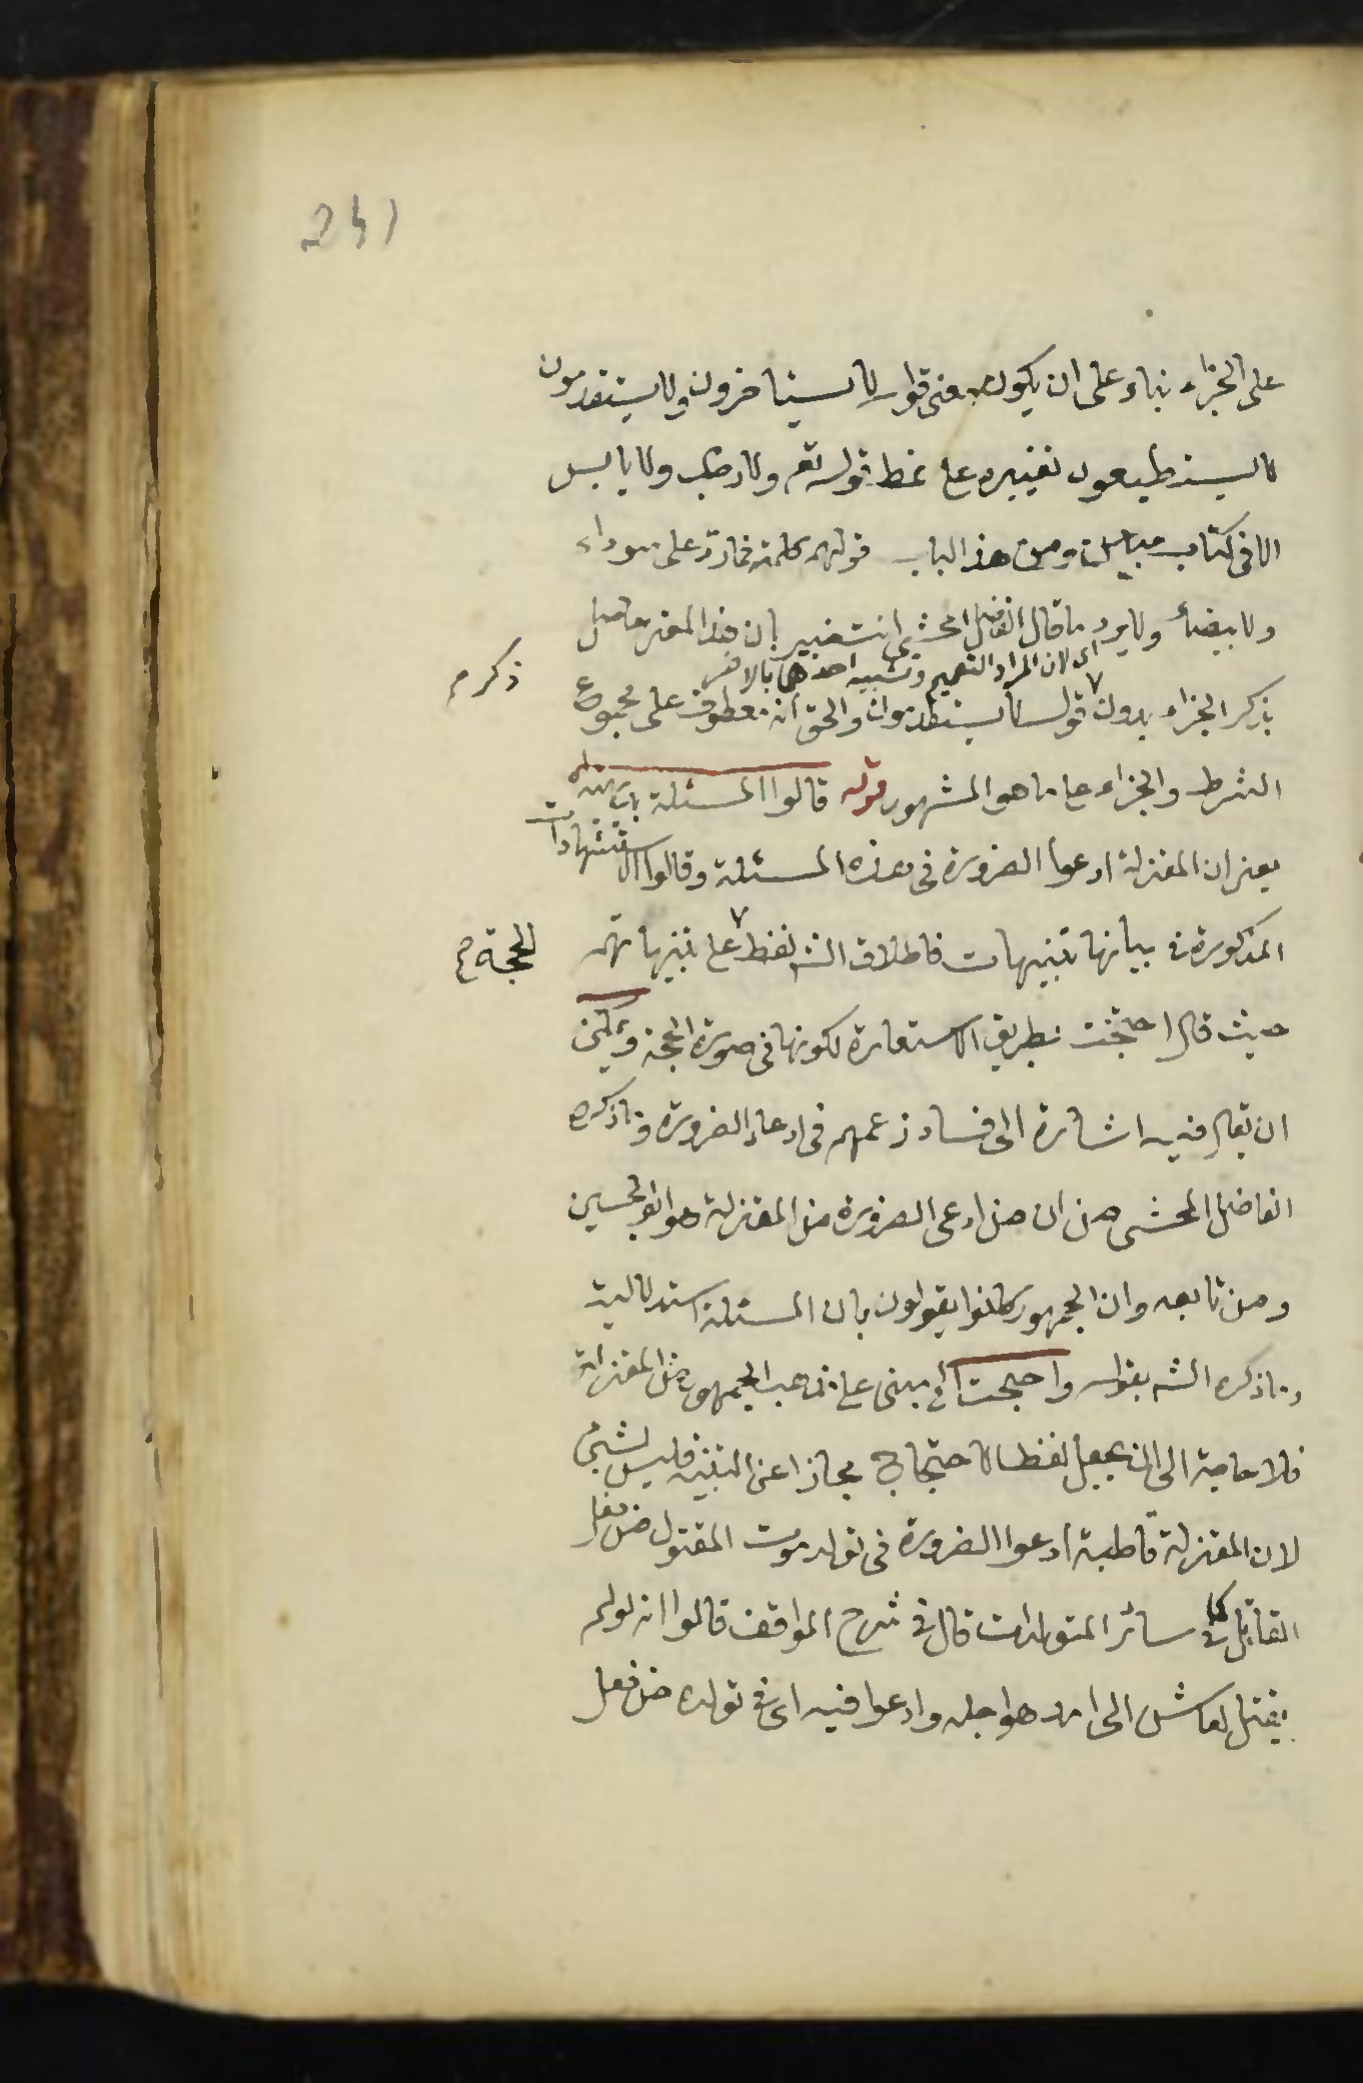 241
على الجزاء بناء على ان يكون معنى قوله لا يستاخرون ولا يستقدمون
لا يستطيعون تغييره على نمط قوله تعم ولا رطب ولا يابس
الا فى كتاب مبين ومن هذا الباب قولهم كلمته فما رد على سوداء
ولا بيضاء ولا يرد ما قال الفاضل المحشى انت خبير بان هذا المعنى حاصل
اى لان المراد التعميم وتشبيه احدهما بالاخر
ذكر م
بذكر الجزاء بدون قوله لا يستقدمون والحق انه معطوف على مجموع
الشرط والجزاء على ما هو المشهور قوله قالوا المسئلة بديهية
يعنى ان المعتزلة ادعوا الضرورة فى هذه المسئلة وقالوا الاستشهادات
المذكورة فى بيانها تنبيهات فاطلاق الش لفظ على تنبيهاتهم
للحجة م
حيث قال احتجت بطريق الاستعارة لكونها فى صورة الحجة ويمكن
ان يقال فيه اشارة الى فساد زعمهم فى ادعاء الضرورة وما ذكره
الفاضل المحشى من ان من ادعى الضرورة من المعتزلة هو ابو الحسين
ومن تابعه وان الجمهور كانوا يقولون بان المسئلة استدلالية
وما ذكره الش بقوله واحتجت الخ مبنى على مذهب الجمهور من المعتزلة
فلا حاجة الى ان يجعل لفظ الاحتجاج مجازا عن التنبيه فليس بشئ
لان المعتزلة قاطبة ادعوا الضرورة فى تولد موت المقتول من فعل
القاتل كما فى سائر المتولدات قال فى شرح المواقف قالوا انه لو لم
يقتل لعاش الى امد هو اجله وادعوا فيه اى فى تولده من فعل